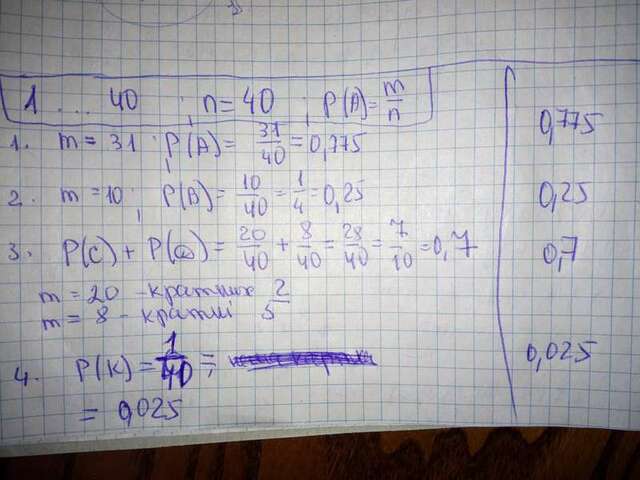 1 ... 40 ; n = 40 ; P(A) = m/n
1. m = 31 ; P(A) = 31/40 = 0,775
0,775
2. m = 10 ; P(B) = 10/40 = 1/4 = 0,25
0,25
3. P(C) + P(D) = 20/40 + 8/40 = 28/40 = 7/10 = 0,7
0,7
m = 20 - кратних 2
m = 8 - кратні 5
4. P(K) = 1/40 =
= 0,025
0,025